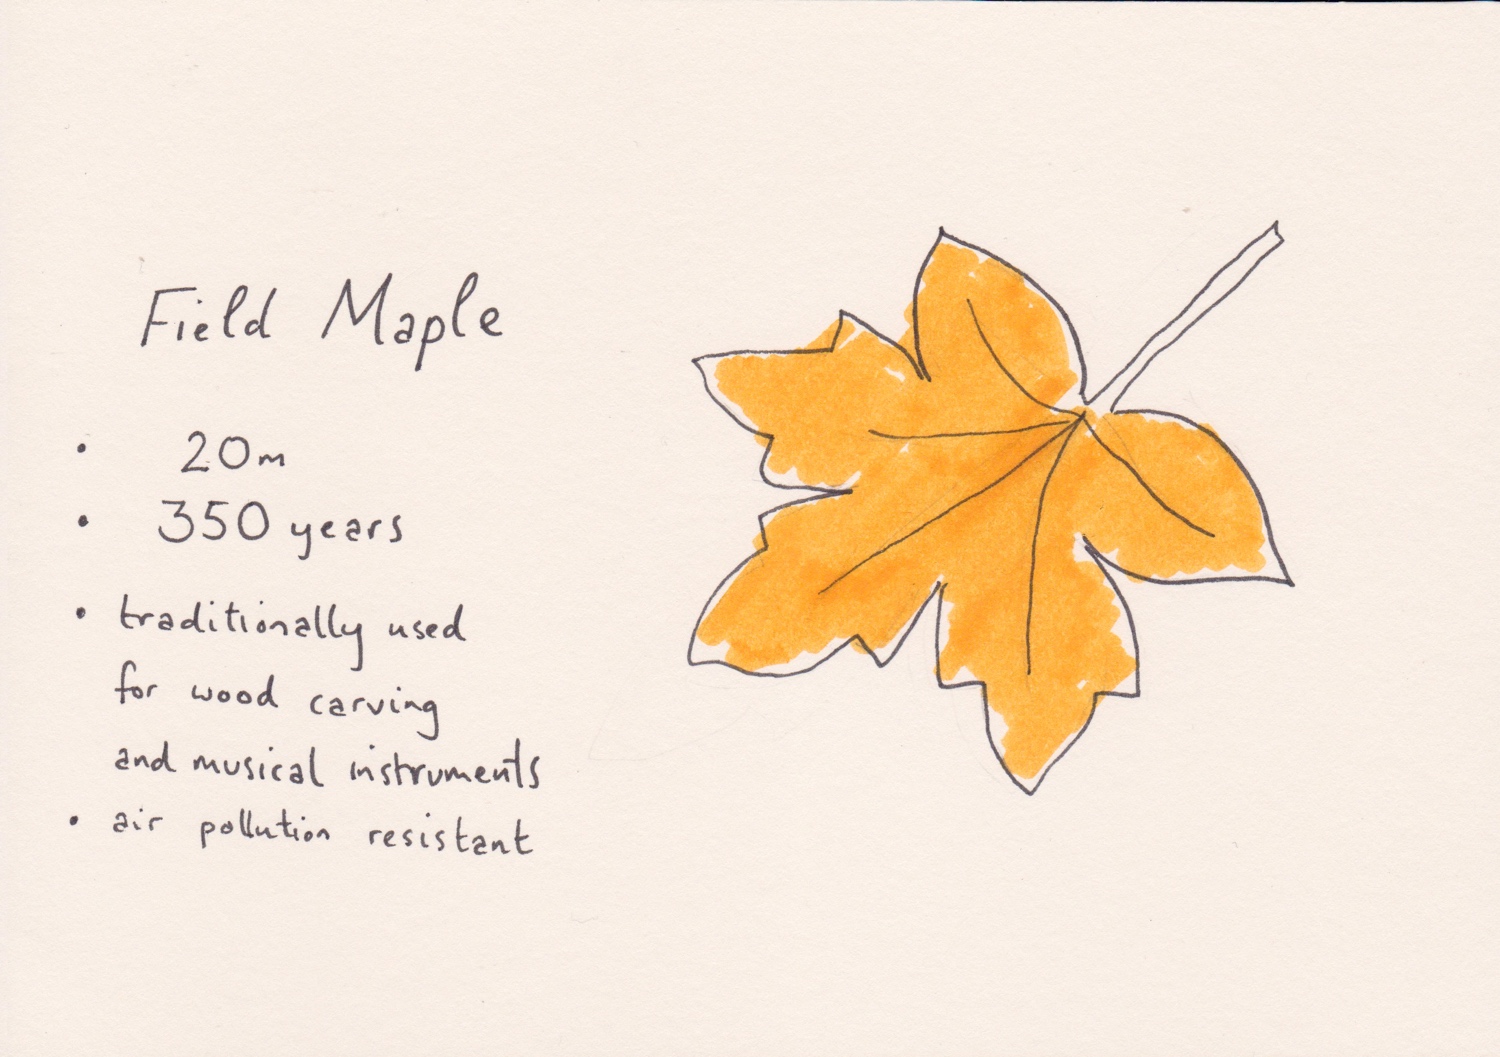 Field Maple
• 20m
• 350 years
• traditionally used
for wood carving
and musical instruments
• air pollution resistant